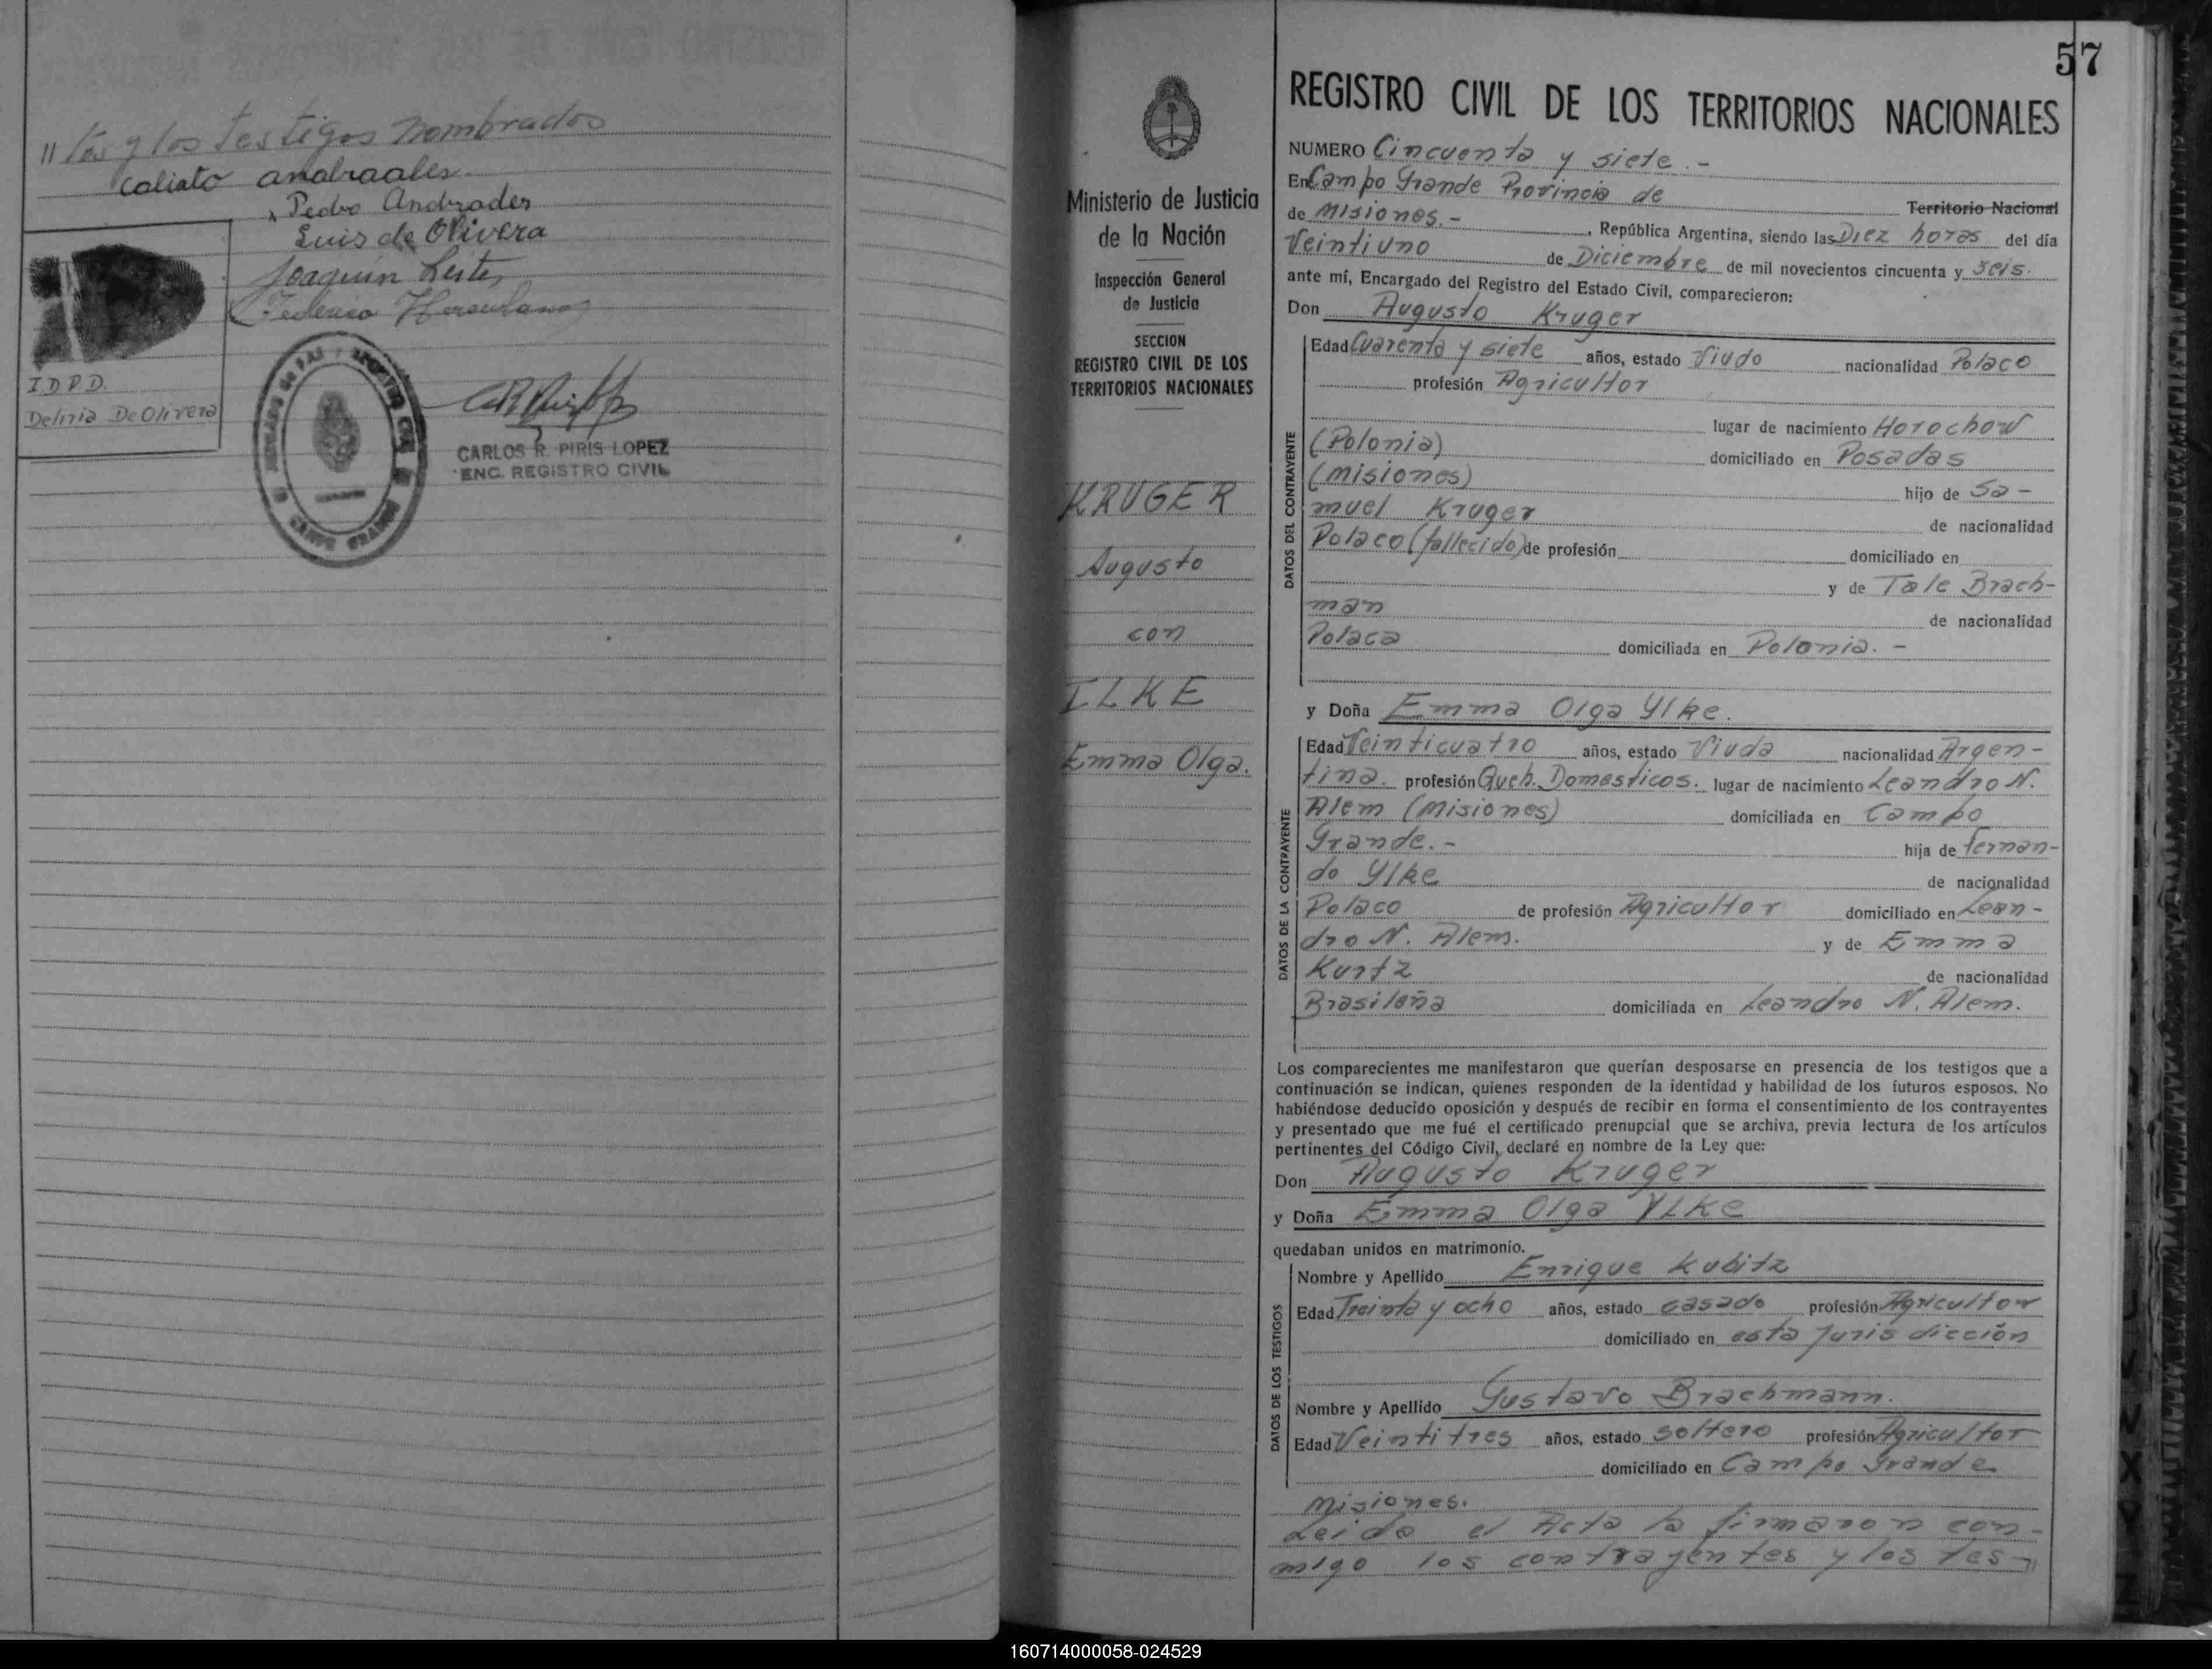 " tes y los testigos nombrados
Calisto andraades
x Pedro Andrades
Luis de Olivera
Joaquin Leites
Federico Herculano
I.D.P.D.
Deliria De Olivera
CAMPO GRANDE
CARLOS R. PIRIS LOPEZ
ENC. REGISTRO CIVIL
57
Ministerio de Justicia
de la Nación
Inspección General
de Justicia
SECCION
REGISTRO CIVIL DE LOS
TERRITORIOS NACIONALES
KRUGER
Augusto
con
ILKE
Emma Olga.
REGISTRO CIVIL DE LOS TERRITORIOS NACIONALES
NUMERO Cincuenta y siete.-
En Campo Grande Provincia de Territorio Nacional
de Misiones.- , República Argentina, siendo las Diez horas del día
Veintiuno de Diciembre de mil novecientos cincuenta y seis.
ante mí, Encargado del Registro del Estado Civil, comparecieron:
Don Augusto Kruger
DATOS DEL CONTRAYENTE
Edad Cuarenta y siete años, estado Viudo nacionalidad Polaco
profesión Agricultor
lugar de nacimiento Horochow
(Polonia) domiciliado en Posadas
(Misiones) hijo de Sa-
muel Kruger de nacionalidad
Polaco (fallecido) de profesión domiciliado en
y de Tale Brach-
man de nacionalidad
Polaca domiciliada en Polonia.-
y Doña Emma Olga Ylke.
DATOS DE LA CONTRAYENTE
Edad Veinticuatro años, estado Viuda nacionalidad Argen-
tina. profesión Queh. Domesticos. lugar de nacimiento Leandro N.
Alem (Misiones) domiciliada en Campo
Grande.- hija de Fernan-
do Ylke de nacionalidad
Polaco de profesión Agricultor domiciliado en Lean-
dro N. Alem. y de Emma
Kurtz de nacionalidad
Brasileña domiciliada en Leandro N. Alem.
Los comparecientes me manifestaron que querían desposarse en presencia de los testigos que a
continuación se indican, quienes responden de la identidad y habilidad de los futuros esposos. No
habiéndose deducido oposición y después de recibir en forma el consentimiento de los contrayentes
y presentado que me fué el certificado prenupcial que se archiva, previa lectura de los artículos
pertinentes del Código Civil, declaré en nombre de la Ley que:
Don Augusto Kruger
y Doña Emma Olga YLKe
quedaban unidos en matrimonio.
DATOS DE LOS TESTIGOS
Nombre y Apellido Enrique Kubitz
Edad Treinta y ocho años, estado casado profesión Agricultor
domiciliado en esta Jurisdicción
Nombre y Apellido Gustavo Brachmann.
Edad Veintitres años, estado soltero profesión Agricultor
domiciliado en Campo Grande
Misiones.
Leida el Acta la firmaron con-
migo los contrayentes y los tes-"
160714000058-024529